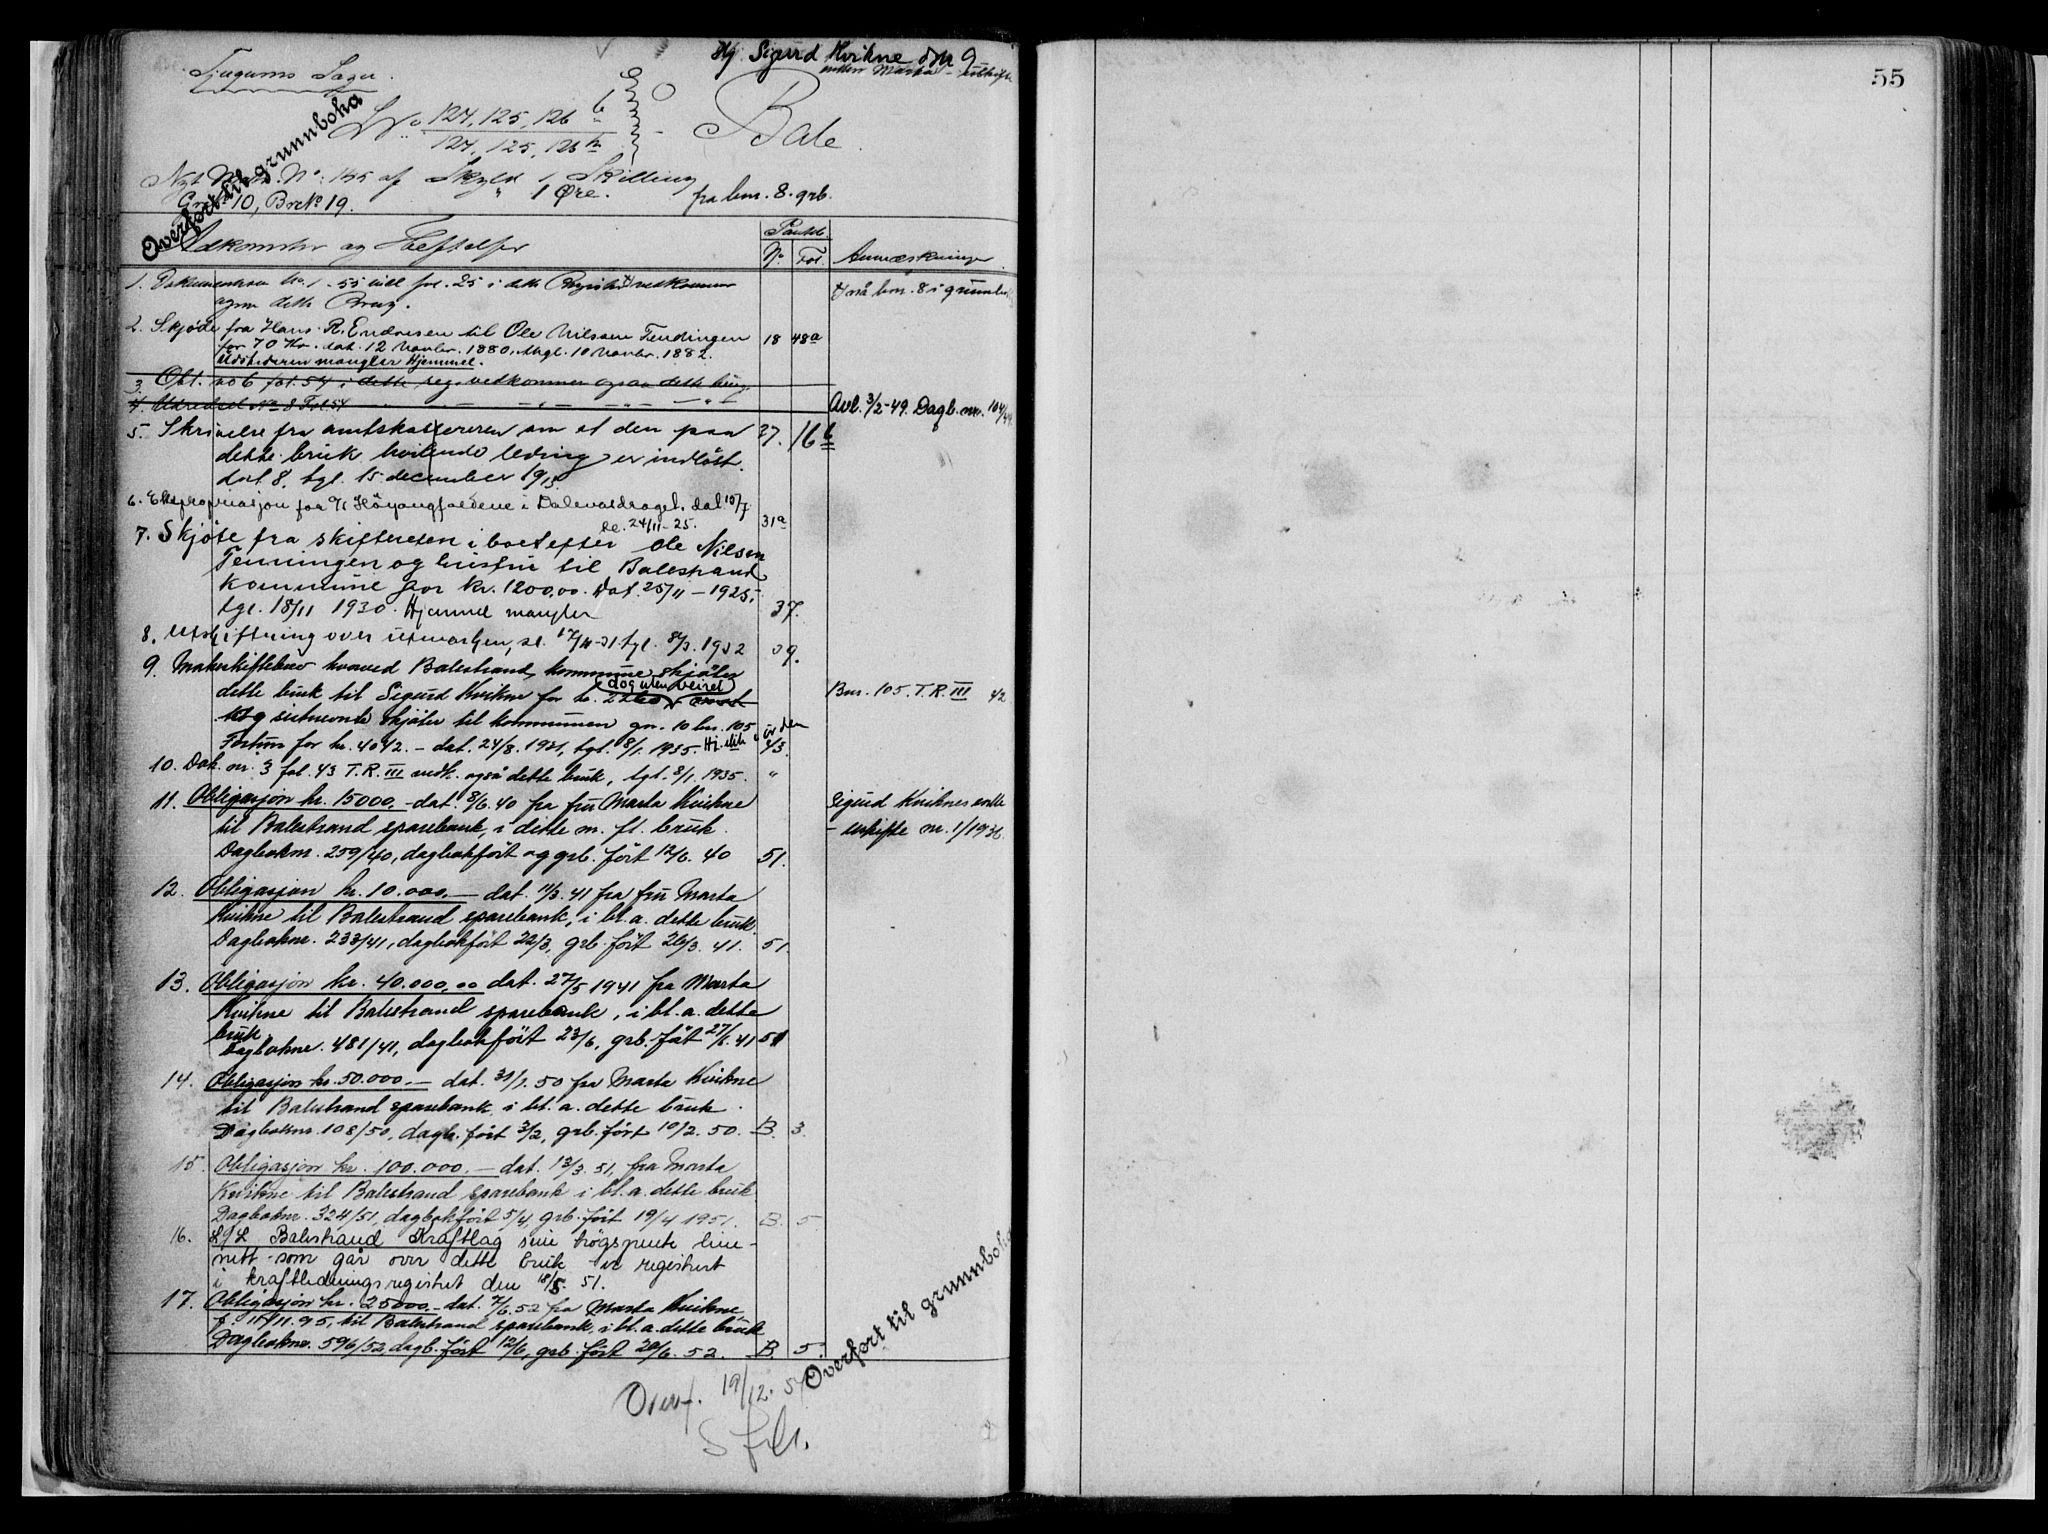 Hj. Sigurd Kvikne dnr 9
enken Marta - uskifte
55
Tjugums Sogn.
Overført til grunnboka
LNo. 124, 125, 126 b
124, 125, 126 b
Bale.
Nyt Matr. No: 155 af Skyld 1 Skilling
Grno 10, Brno 19. " 1 Øre. fra bnr. 8. grb.
Adkomster og Heftelser
Panteb.
No. Fol. Anmærkninger
1. Dokumenterne No. 1-55 inkl. fol. 25 i dette Register vedkommer
ogsaa dette Brug.
Også bnr. 8 i grunnboka
2. Skjøde fra Hans R. Endresen til Ole Nilssen Tendingen
for 70 Kr. dat. 12 Novbr. 1880, thgl. 10 Novbr. 1882. 18 48a
Udstederen mangler Hjemmel.
3. Obl. no 6 fol. 54 i dette reg. vedkommer ogsaa dette brug.
4. Udredsel No 8 Fol 54 - " - " - " -
Avl. 3/2-49. Dagb. nr. 104/49.
5. Skrivelse fra amtskassereren om at den paa 27. 16b
dette bruk hvilende leding er indløst.
dat 8, tgl. 15 december 1915.
6. Ekspropriasjon for A/S Høyangfaldene i Dalevasdraget. dat. 10/7
se. 24/11-25. 31a
7. Skjøte fra skifteretten i boet efter Ole Nilsen
Tenningen og hustru til Balestrand
kommune for kr. 1200,00. Dat. 25/11 - 1925,
tgl. 18/11 1930. Hjemmel mangler 37.
8. Utskiftning over utmarken, sl. 17/10-31. tgl. 8/3. 1932 39.
9. Makeskiftebrev hvorved Balestrand kommune skjøter
dette bruk til Sigurd Kvikne for kr. 2260 dog uten veiret
Bnr. 105. T.R. III 42
og sistnevnte skjøter til kommunen gn. 10 bn. 105
Fortun for kr. 4042. - dat. 24/8. 1931, tgl. 8/1. 1935. 43.
10. Dok. nr. 3 fol. 43 T.R. III vedk. også dette bruk, tgl. 8/1. 1935. "
11. Obligasjon kr. 15000,- dat. 8/6. 40 fra fru Marta Kvikne
til Balestrand sparebank, i dette m. fl. bruk.
Dagboknr. 259/40, dagbokført og grb. ført 12/6. 40 51.
Sigurd Kviknes enke
- uskifte nr. 1/1936.
12. Obligasjon kr. 10.000,- dat. 11/3. 41 fra fru Marta
Kvikne til Balestrand sparebank, i bl.a. dette bruk.
Dagboknr. 233/41, dagbokført 22/3, grb. ført 26/3. 41. 51.
13. Obligasjon kr. 40.000,00 dat. 27/5 1941 fra Marta
Kvikne til Balestrand sparebank, i bl.a. dette
bruk.
Dagboknr. 481/41, dagbokført 23/6, grb. ført 27/6. 41 51
14. Obligasjon kr. 50.000,- dat. 31/1. 50 fra Marta Kvikne
til Balestrand sparebank i bl.a. dette bruk.
Dagboknr. 108/50, dagb. ført 3/2, grb. ført 10/2. 50. B. 3.
15. Obligasjon kr. 100.000,- dat. 13/3. 51, fra Marta
Kvikne til Balestrand sparebank i bl.a. dette bruk
Dagboknr. 324/51, dagbokført 5/4, grb. ført 19/4 1951. B. 5
16. L/L Balestrand Kraftlag sine høgspente line-
nett som går over dette bruk er registrert
i kraftledningsregistret den 18/5. 51.
17. Obligasjon kr. 25000,- dat. 7/6. 52 fra Marta Kvikne,
f. 11/11. 95, til Balestrand sparebank, i bl.a. dette bruk
Dagboknr. 596/52, dagb. ført 12/6, grb. ført 20/6. 52. B. 5.
Overført til grunnboka
Overf. 19/12. 57